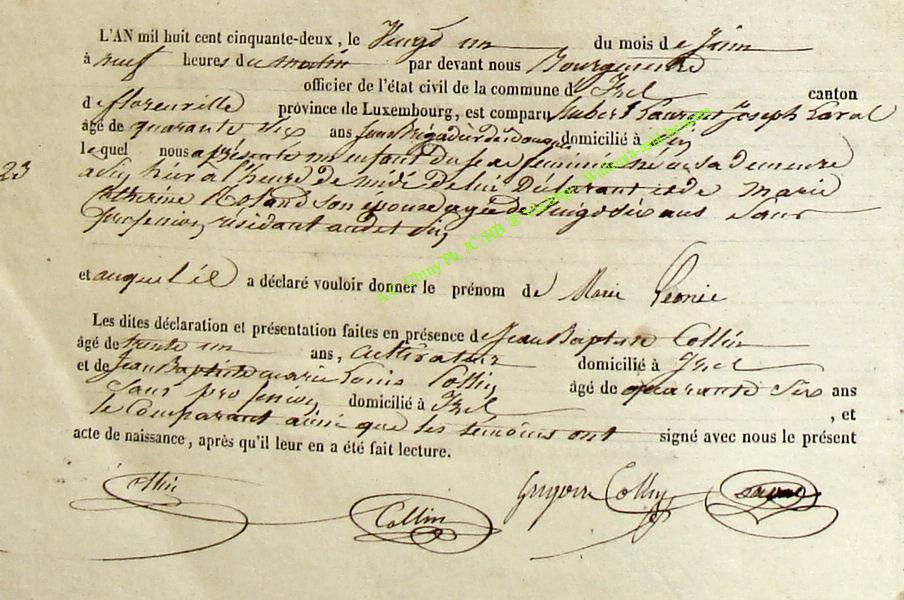 L'AN mil huit cent cinquante-deux, le Vingt un du mois de Juin
à neuf heures du matin par devant nous Bourguemetre
officier de l'état civil de la commune d'Izel canton
de florenville province de Luxembourg, est comparu hubert Laurent Joseph Laval
âgé de quarante six ans domicilié à
lequel nous a présenté un enfant du sexe feminin né a sa demeure
23
hier a l'heure de midi de lui Déclarant et de Marie
Catherine Roland son epouse agée de vingt six ans Sans
profession, residant audit
et auquel il a déclaré vouloir donner le prénom de Marie Léonie
Les dites déclaration et présentation faites en présence de Jean Baptiste Collin
âgé de trente un ans, cultivateur domicilié à Izel
et de Jean Baptiste marie Louis Collin âgé de quarante six ans
Sans profession, domicilié à Izel , et
le Comparant ainsi que les temoins ont signé avec nous le présent
acte de naissance, après qu'il leur en a été fait lecture.
Collin
Grégoire Collin
Laval